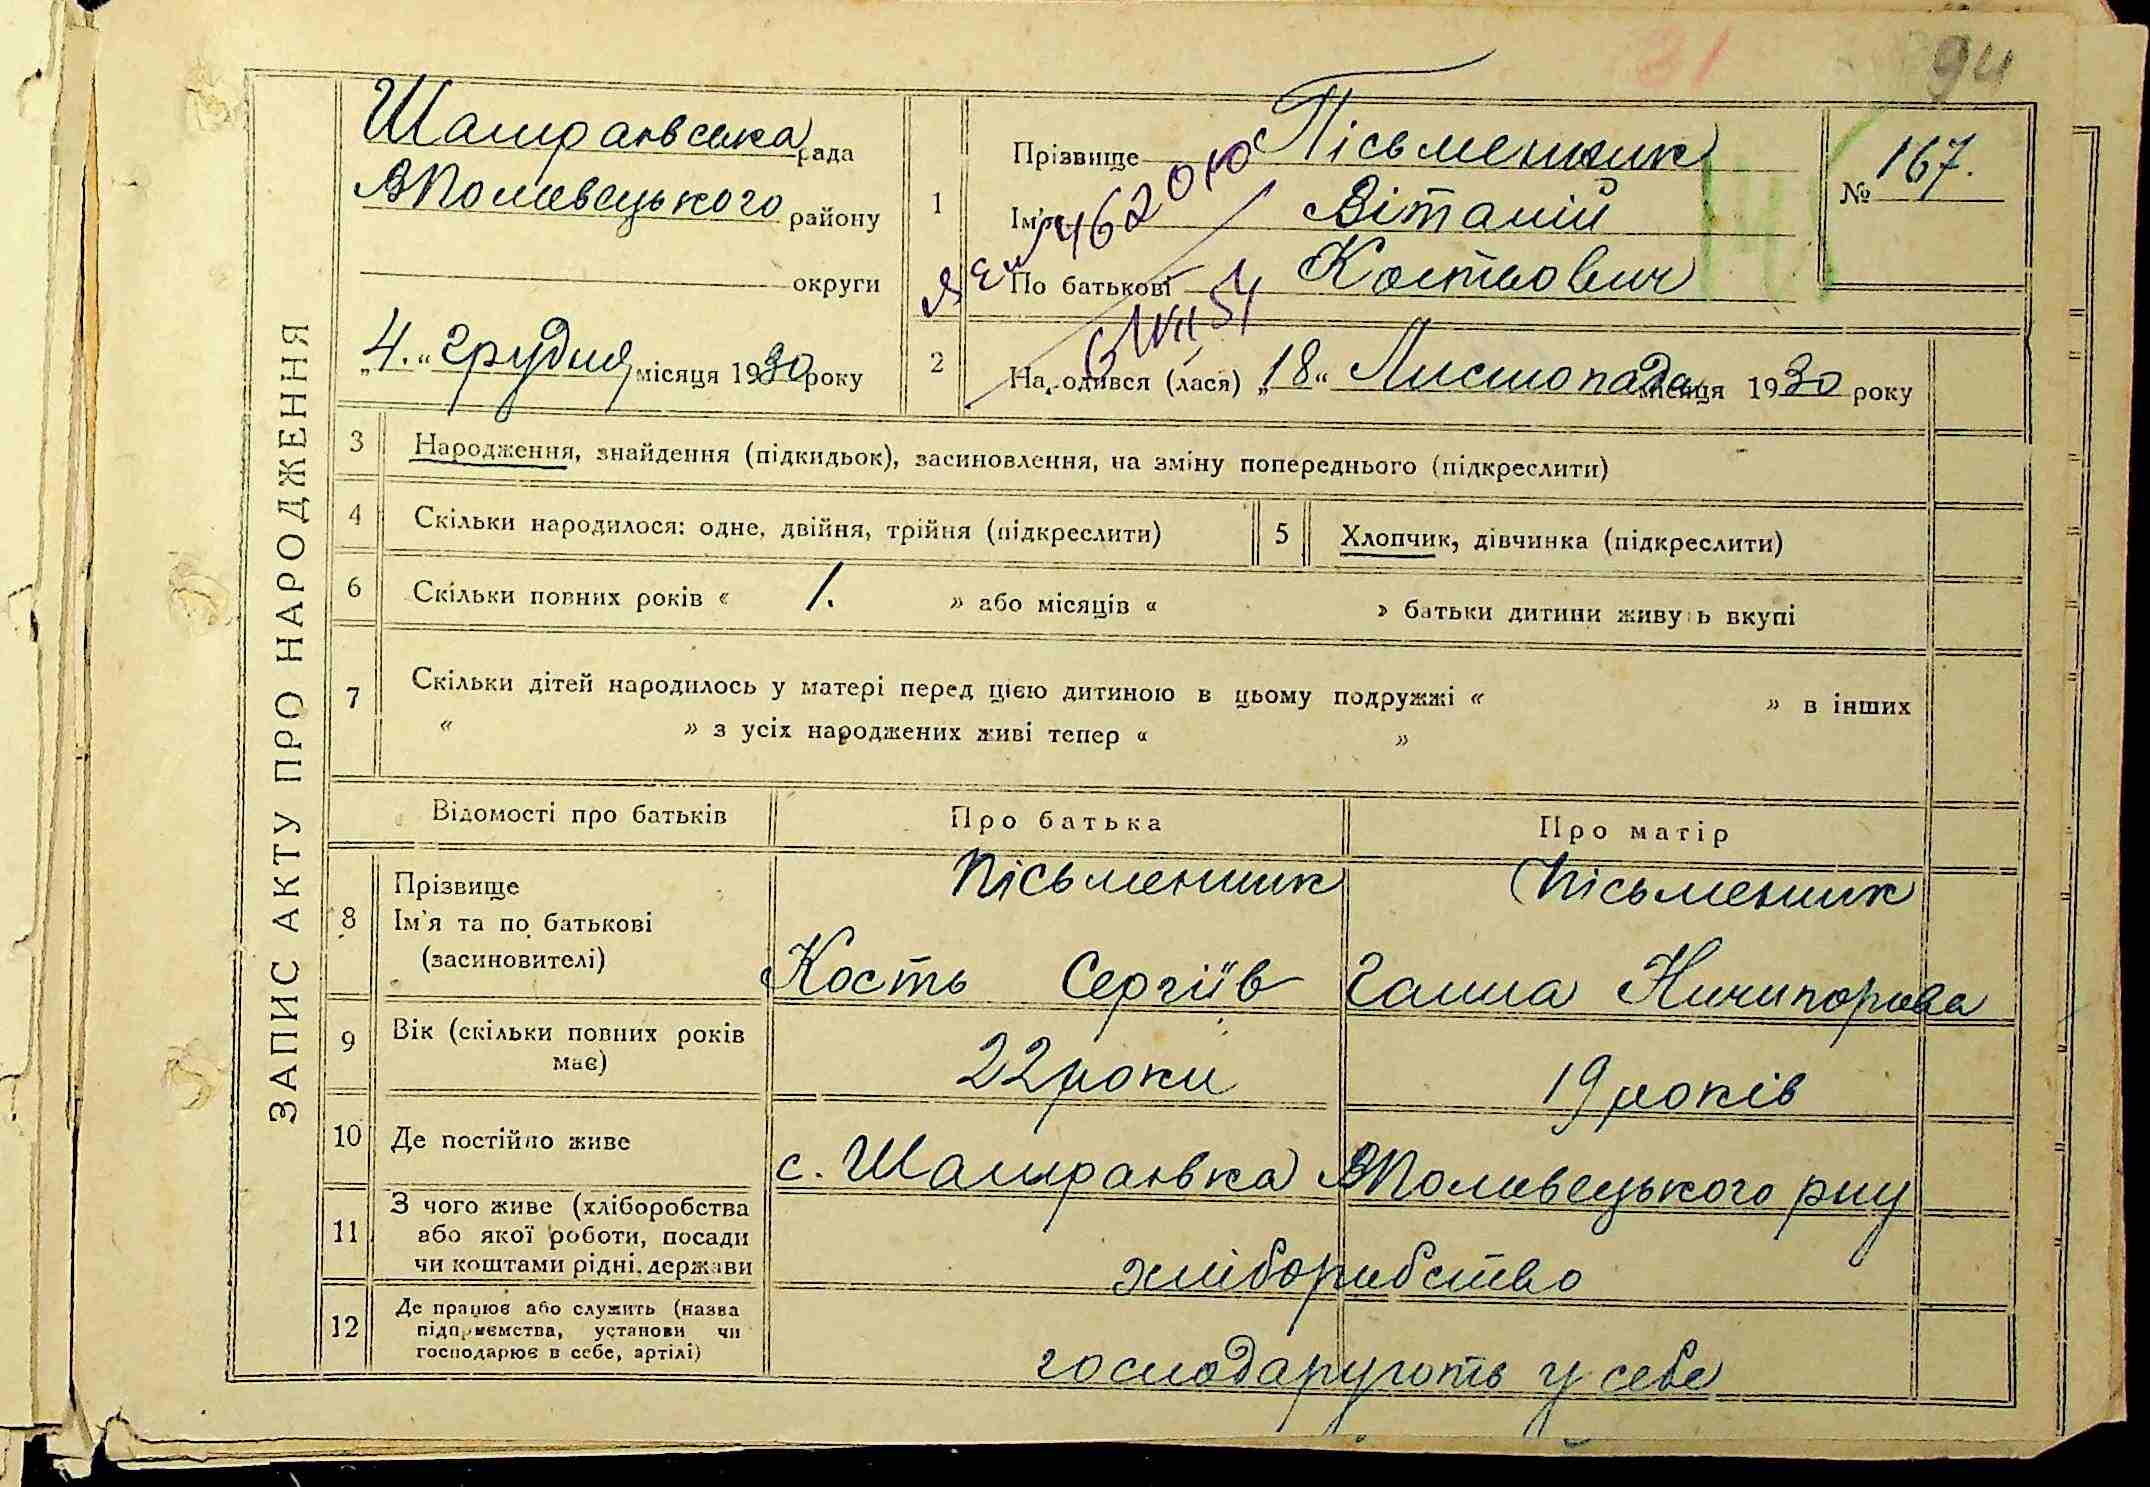 94
ЗАПИС АКТУ ПРО НАРОДЖЕННЯ
Шамраївська рада
ВПоловецького району
округи
„4.“ грудня місяця 1930 року
1
Прізвище Пісьменник
Ім'я Віталій
По батькові Костьович
№ 167.
2
Народився (лася) „18“ Листопада місяця 1930 року
3 Народження, знайдення (підкидьок), засиновлення, на зміну попереднього (підкреслити)
4 Скільки народилося: одне, двійня, трійня (підкреслити) 5 Хлопчик, дівчинка (підкреслити)
6 Скільки повних років « 1. » або місяців « » батьки дитини живуть вкупі
7 Скільки дітей народилось у матері перед цією дитиною в цьому подружжі « » в інших
« » з усіх народжених живі тепер « »
Відомості про батьків Про батька Про матір
8 Прізвище Пісьменник Пісьменик
Ім'я та по батькові
(засиновителі) Кость Сергіїв Ганна Ничипорова
9 Вік (скільки повних років
має) 22 роки 19 років
10 Де постійно живе с. Шамраївка ВПоловецького рну
11 З чого живе (хліборобства
або якої роботи, посади
чи коштами рідні, держави хліборобство
12 Де працює або служить (назва
підприємства, установи чи
господарює в себе, артілі) господарують у себе